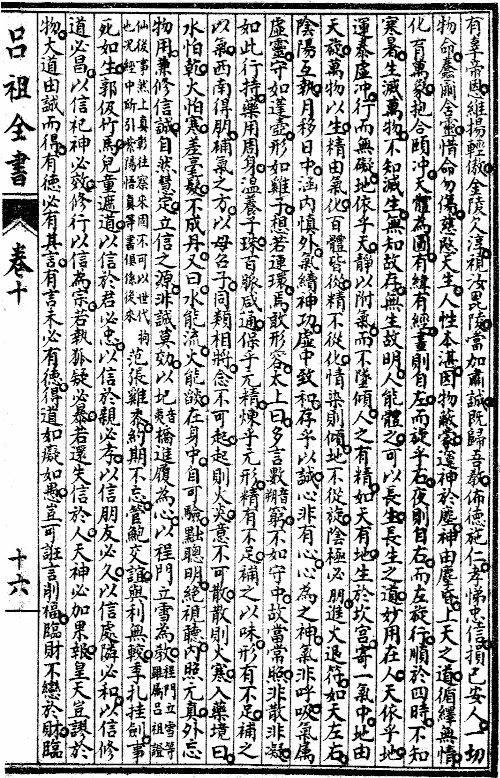 有辜帝恩維揚輕傲金陵人淳視汝毘陵當加肅誠既歸吾教佈德施仁孝悌忠信損已安人一切
物命蠢蝡含靈惜命勿傷慈愍天生人性本湛因物蔽蒙運神於塵神由塵昏上天之道循繹無情
化育萬彙抱合頤冲天體為圓有緯有經晝則自左而旋乎右夜則自右而左旋行順於四時不知
寒暑生滅萬物不知滅生無知故存無生故明人能體之可以長生長生之道妙用在人天依乎地
運泰虛冲行而無礙地依乎天靜以附氣而不墜傾人之有精如天有地生於坎宫寄一氣中地由
天旋萬物以生精由氣化百體皆從精不從化情染則傾地不從旋陰極必朋進火退符如天左右
陰陽互執月移日中涵内慎外氣續神功虛中致和存乎以誠心非有心心為之神氣非呼吸氣屬
虛靈守如蓬壺形如雞子想若連環焉敢形容太上曰多言數窮不如守中故當常照非散非凝
如此行持藥用周身温養子珠百脈咸通保乎元精煉乎元形精有不足補之以味形有不足補之
以氣西南得朋補氣之方以母召子同類相將念不可起起則火炎意不可散散則火寒入藥境曰
水怕乾火怕寒差毫髮不成丹又曰水能流火能燄在身中自可驗黜聰明絶視聽内照元真外忘
物用兼修信誠自然慧定立信之源非誠莫効以圯橋進履為心以程門立雪為敎程門立雪等事雖屬吕祖證
仙後事然上真彰往察來周不可以世代拘也况經中所引紫陽悟真等書俱係後來范張雞黍約期不忘管鮑交誼與利無較季札挂劍事
死如生郭伋竹馬兒童遵道以信於君必忠以信於親必孝以信朋友必久以信處隣必和以信修
道必昌以信祀神必效修行以信為宗若執狐疑必暴若還失信於人天神必加果報皇天豈謬於
物大道由誠而得有德必有其言有言未必有德得道如癡如愚豈可誑言削福臨財不戀於財臨
吕祖全書
卷十
十六